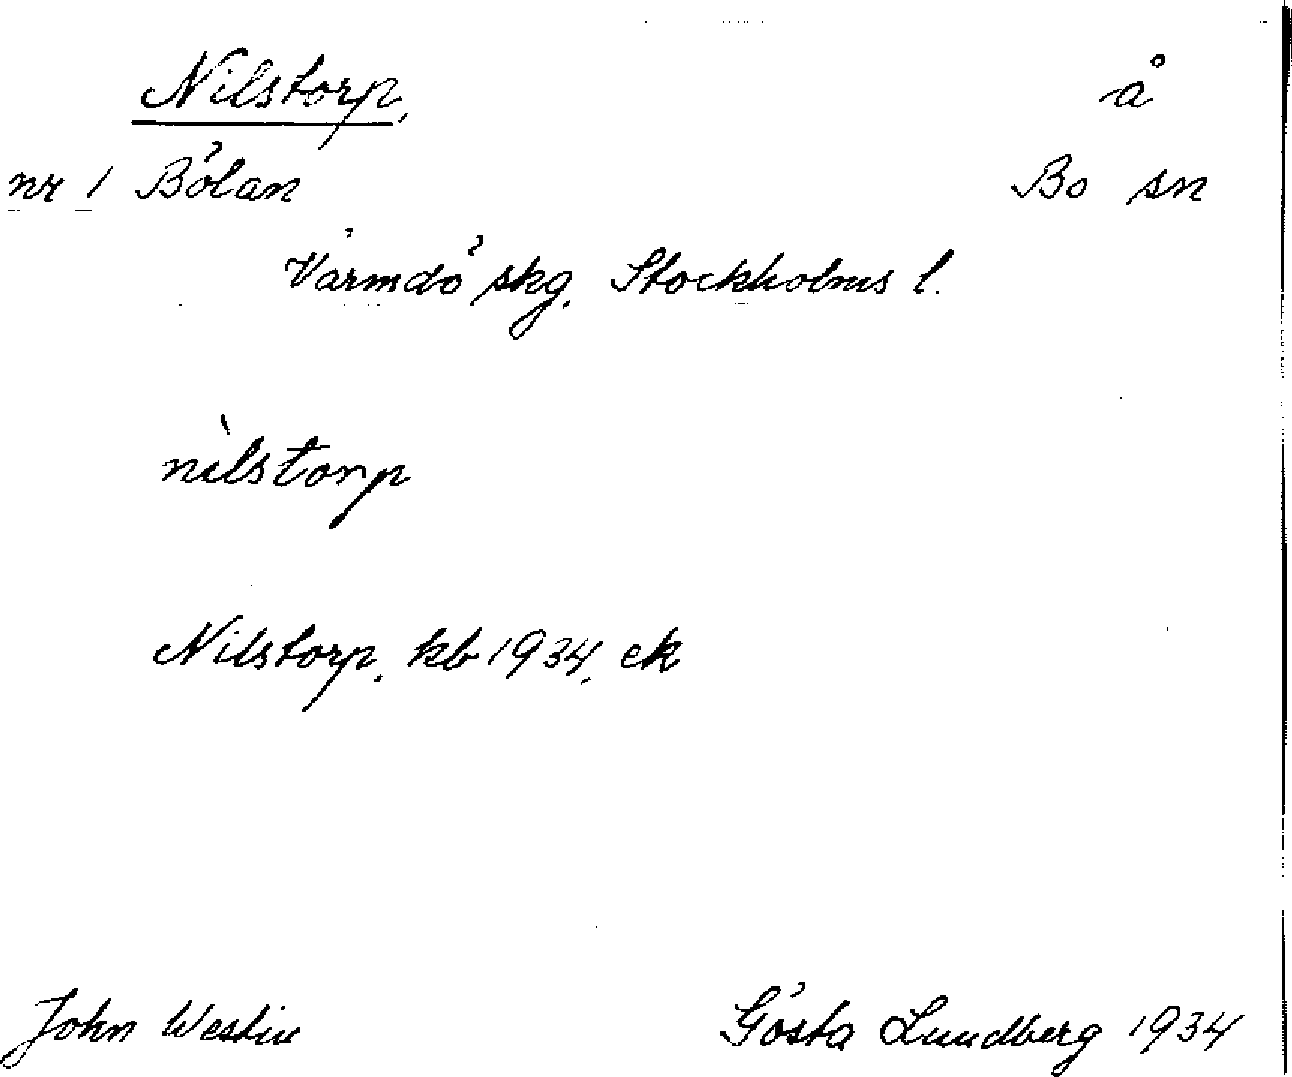 Nilstorp, å
nr 1 Bölan Bo sn
Värmdö skg. Stockholms l.
nìlstorp
Nilstorp, kb 1934, ek
John Westin Gösta Lundberg 1934